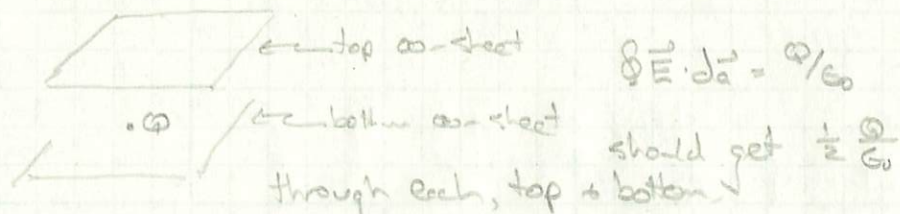 ← top ∞-sheet
∮ E⃗ · da⃗ = Q/ε₀
.Q
← bottom ∞-sheet
should get 1/2 Q/ε₀
through each, top + bottom ✓